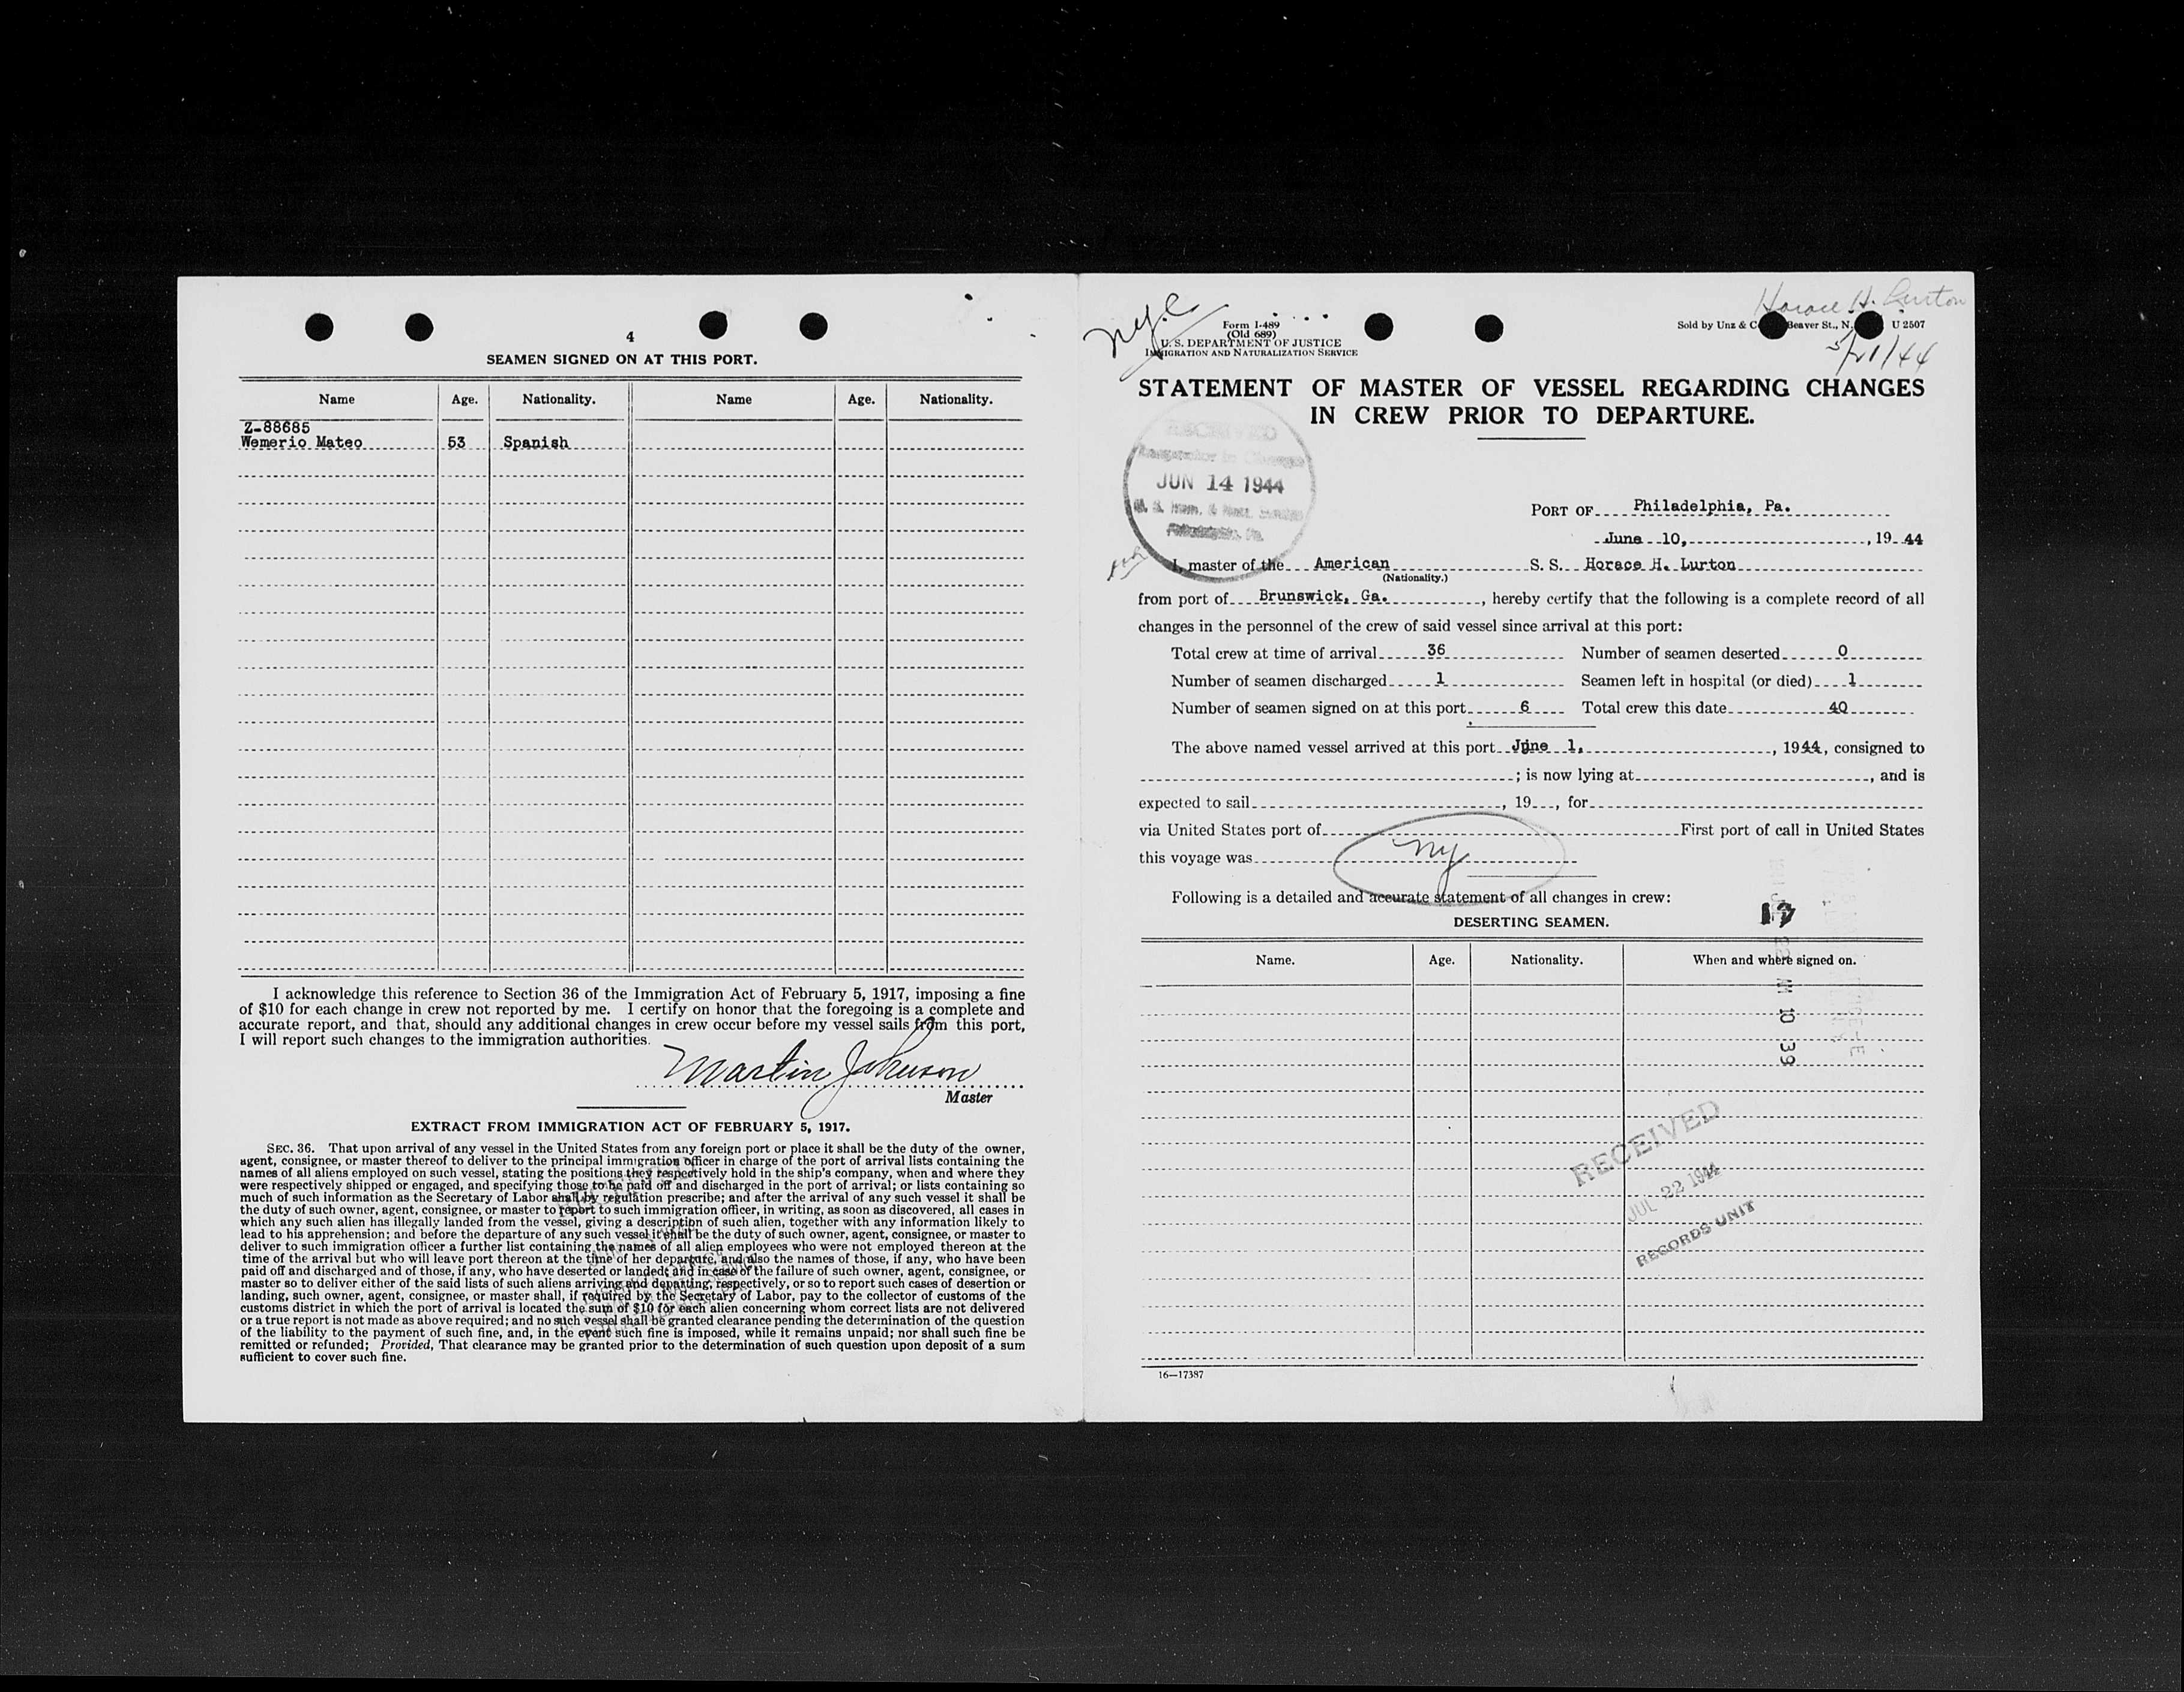 4
SEAMEN SIGNED ON AT THIS PORT.
Name Age. Nationality. Name Age. Nationality.
Z-88685
Wemerio Mateo 53 Spanish
I acknowledge this reference to Section 36 of the Immigration Act of February 5, 1917, imposing a fine
of $10 for each change in crew not reported by me. I certify on honor that the foregoing is a complete and
accurate report, and that, should any additional changes in crew occur before my vessel sails from this port,
I will report such changes to the immigration authorities.
Martin Johnson
Master
EXTRACT FROM IMMIGRATION ACT OF FEBRUARY 5, 1917.
SEC. 36. That upon arrival of any vessel in the United States from any foreign port or place it shall be the duty of the owner,
agent, consignee, or master thereof to deliver to the principal immigration officer in charge of the port of arrival lists containing the
names of all aliens employed on such vessel, stating the positions they respectively hold in the ship's company, when and where they
were respectively shipped or engaged, and specifying those to be paid off and discharged in the port of arrival; or lists containing so
much of such information as the Secretary of Labor shall by regulation prescribe; and after the arrival of any such vessel it shall be
the duty of such owner, agent, consignee, or master to report to such immigration officer, in writing, as soon as discovered, all cases in
which any such alien has illegally landed from the vessel, giving a description of such alien, together with any information likely to
lead to his apprehension; and before the departure of any such vessel it shall be the duty of such owner, agent, consignee, or master to
deliver to such immigration officer a further list containing the names of all alien employees who were not employed thereon at the
time of the arrival but who will leave port thereon at the time of her departure, and also the names of those, if any, who have been
paid off and discharged and of those, if any, who have deserted or landed; and in case of the failure of such owner, agent, consignee, or
master so to deliver either of the said lists of such aliens arriving and departing, respectively, or so to report such cases of desertion or
landing, such owner, agent, consignee, or master shall, if required by the Secretary of Labor, pay to the collector of customs of the
customs district in which the port of arrival is located the sum of $10 for each alien concerning whom correct lists are not delivered
or a true report is not made as above required; and no such vessel shall be granted clearance pending the determination of the question
of the liability to the payment of such fine, and, in the event such fine is imposed, while it remains unpaid; nor shall such fine be
remitted or refunded; Provided, That clearance may be granted prior to the determination of such question upon deposit of a sum
sufficient to cover such fine.
Horace H. Lurton
5/21/44
nyc
Form I-489
(Old 689)
U. S. DEPARTMENT OF JUSTICE
IMMIGRATION AND NATURALIZATION SERVICE
Sold by Unz & C Beaver St., N. U 2507
STATEMENT OF MASTER OF VESSEL REGARDING CHANGES
IN CREW PRIOR TO DEPARTURE.
RECEIVED
Inspector in Charge
JUN 14 1944
Philadelphia, Pa.
PORT OF Philadelphia, Pa.
June 10, , 19 44
I, master of the American S. S. Horace H. Lurton
(Nationality.)
from port of Brunswick, Ga. , hereby certify that the following is a complete record of all
changes in the personnel of the crew of said vessel since arrival at this port:
Total crew at time of arrival 36 Number of seamen deserted 0
Number of seamen discharged 1 Seamen left in hospital (or died) 1
Number of seamen signed on at this port 6 Total crew this date 40
The above named vessel arrived at this port June 1, , 1944, consigned to
; is now lying at , and is
expected to sail , 19 , for
via United States port of First port of call in United States
this voyage was ny
Following is a detailed and accurate statement of all changes in crew:
DESERTING SEAMEN.
17
Name. Age. Nationality. When and where signed on.
AM 10 39
RECEIVED
JUL 22 1944
RECORDS UNIT
16—17387